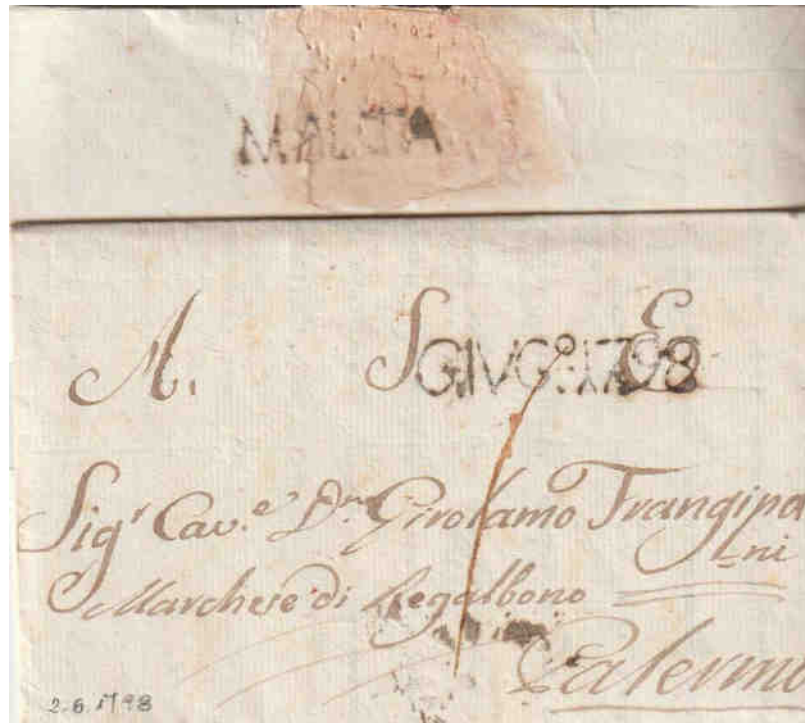 MALTA
A. S. E.
GIVGº.1798
Sig.r Cav.e D.n Girolamo Frangipa
-ni
Marchese di Regalbono
Palermo
2.6.1798